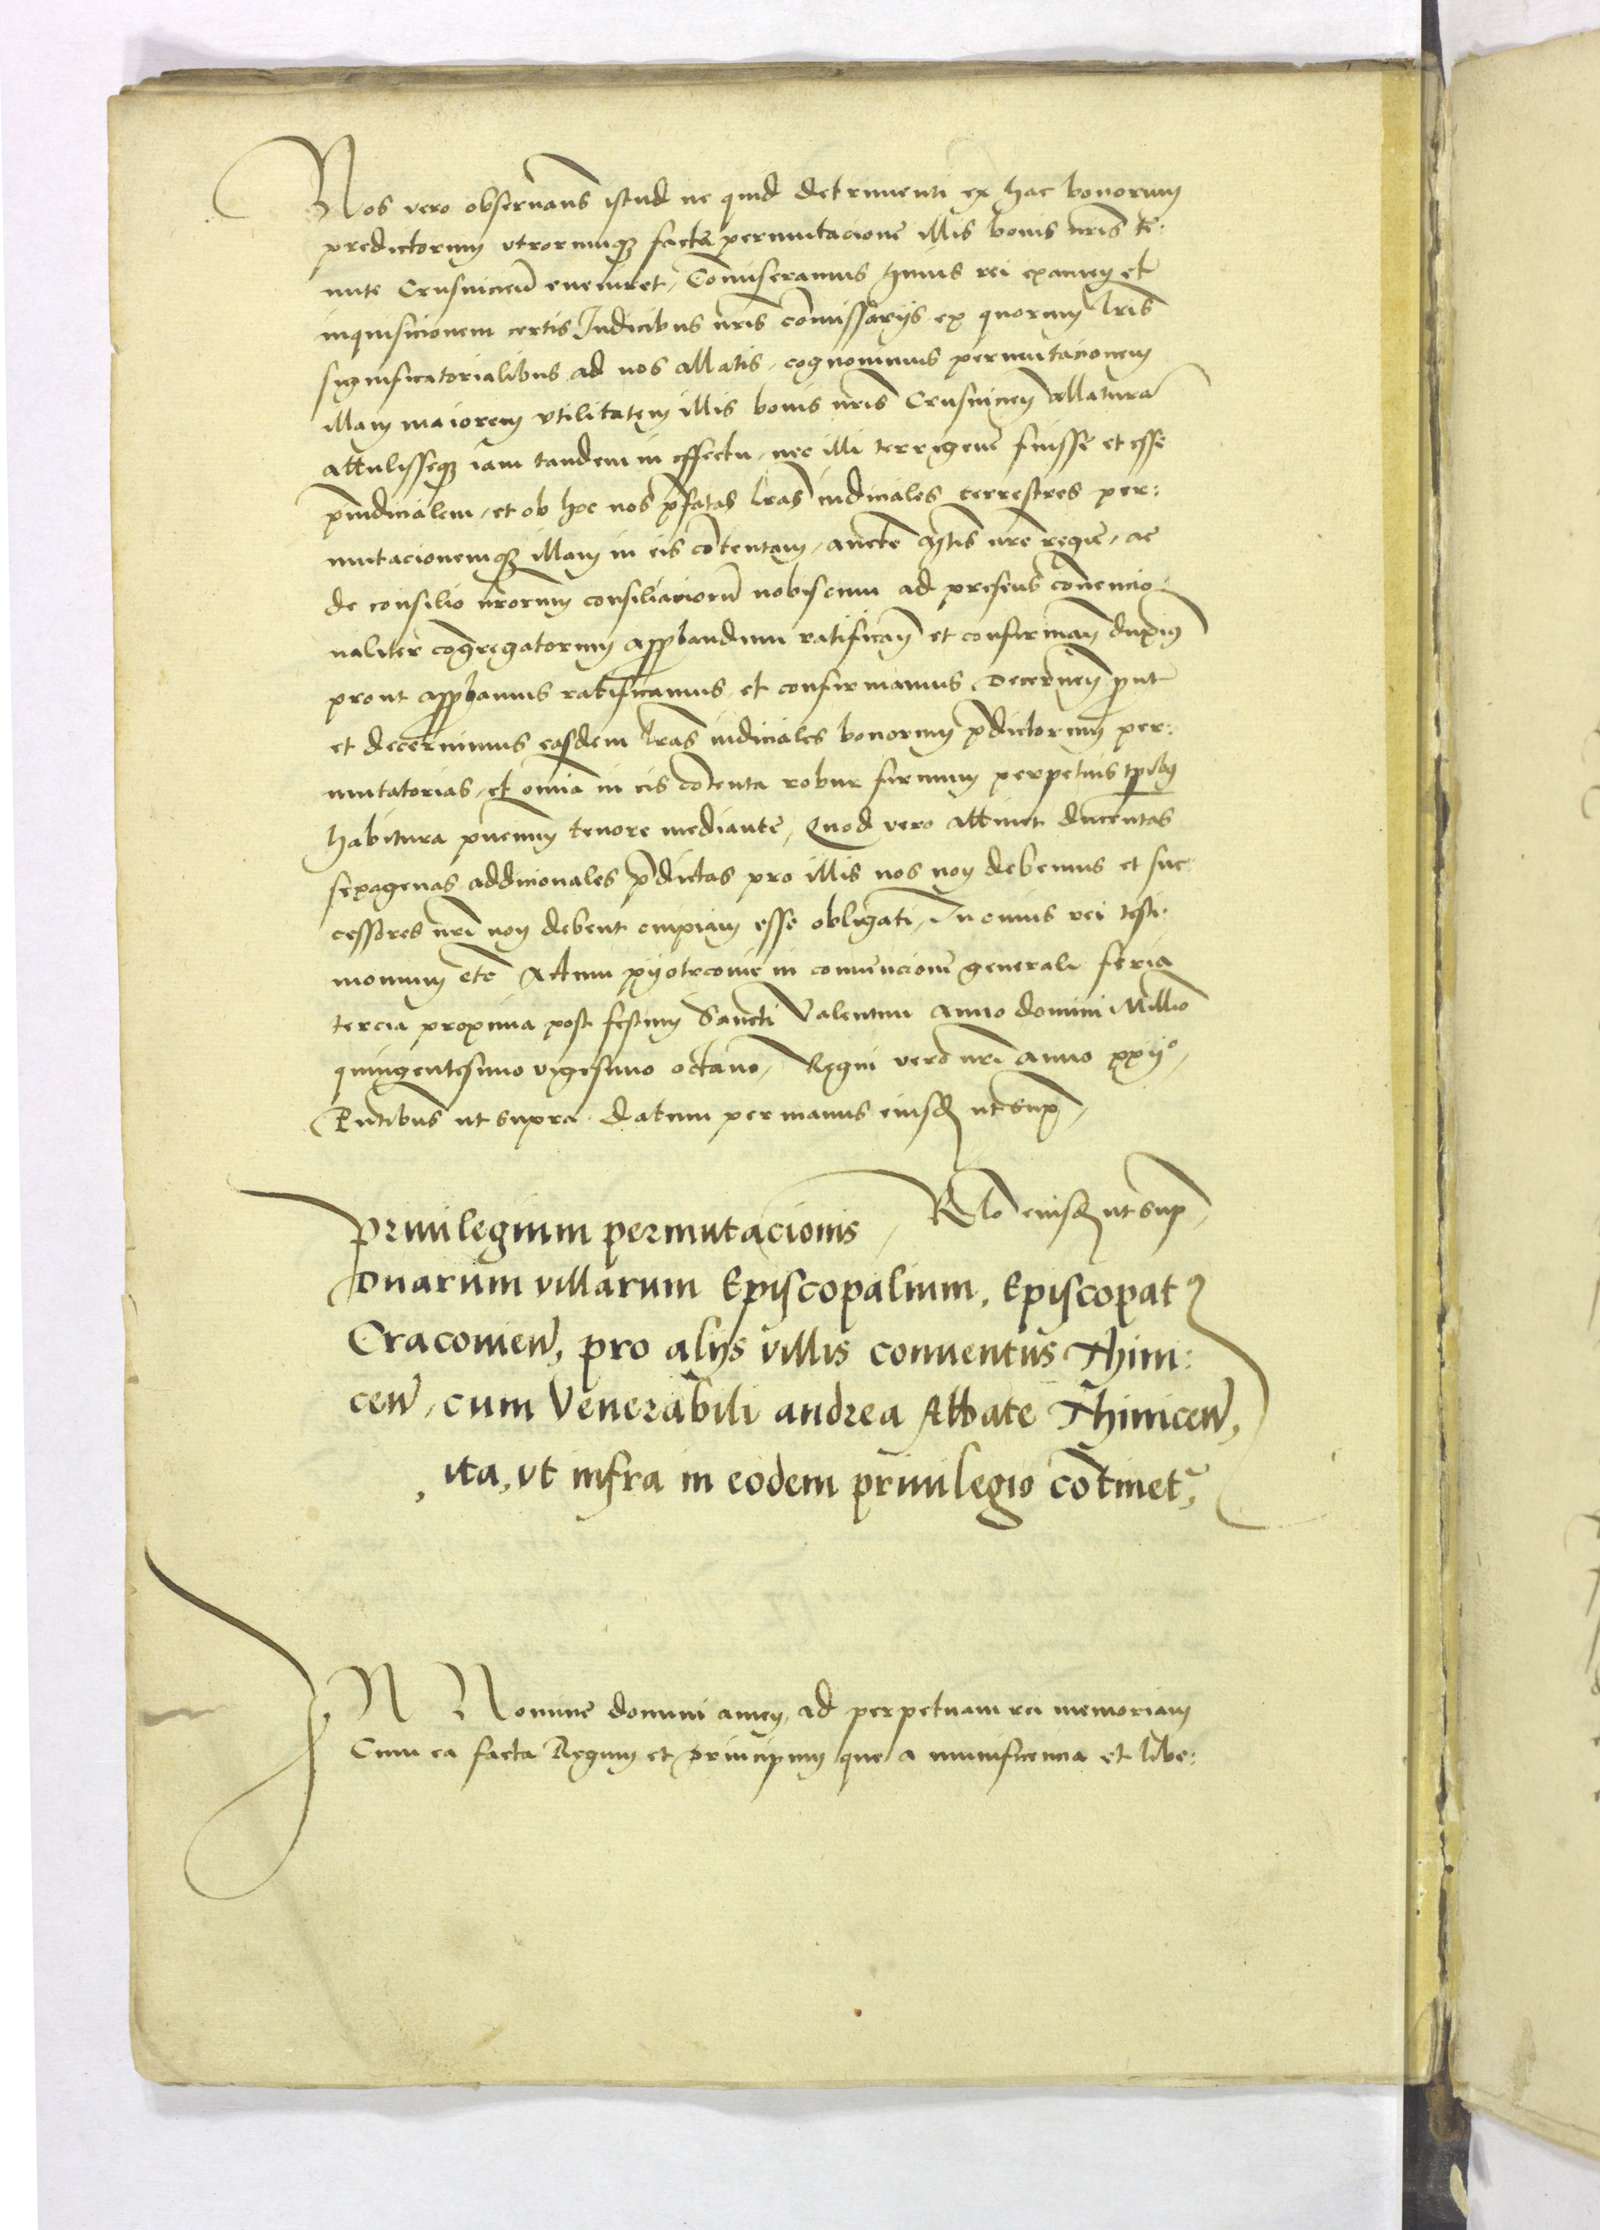 Nos vero observans istud ne quid detrimenti ex hac bonorum
predictorum utrorumq facta permutacione illis bonis nris te:
nute Crusviciens eveniret, Comiseramus huius rei examen et
inquisicionem certis Iudicibus nris comissarijs ex quorum lris
significatorialibus ad nos allatis, cognovimus permutacionem
illam maiorem utilitatem illis bonis nris Crusvicien allaturā
attulisseq iam tandem in effectu, nec illi terrigene fuisse et esse
piudicialem, et ob hoc nos pfatas lras iudiciales terrestres per:
mutacionemq illam in eis cōtentam, aucte nre regie, ac
de consilio nrorum consiliariorū nobiscum ad presens convencio:
naliter cōgregatorum approbandum ratificañ et confirmañ duxim9
prout approbamus ratificamus et confirmamus Decerneñ prout
et decernimus easdem lras iudiciales bonorum pdictorum per:
mutatorias, et omnia in eis cōtenta robur firmum perpetuis tpibus
habitura pncium tenore mediante, Quod vero attinet ducentas
sexagenas addicionales pdictas pro illis nos non debemus et suc
cessores nri non debent cuipiam esse obligati, In cuius rei testi:
monium etc Actum pyotrcovie in convencione generali feria
tercia proxima post festum Sancti Valentini Anno domini Millio
quingentesimo vigesimo octavo, Regni vero nri anno xxijº,
Pntibus ut supra datum per manus eiusd ut sup,
Rlo eiusd ut sup,
Privilegium permutacionis,
Duarum villarum Episcopalium, Episcopat9
Cracovien, pro alijs villis conventus Thini:
cen, cum Venerabili andrea Abbate Thinicen,
ita, ut infra in eodem privilegio cōtinet,
IN Nomine domini amen, ad perpetuam rei memoriam
Cum ea facta Regum et principum que a munificencia et libe: